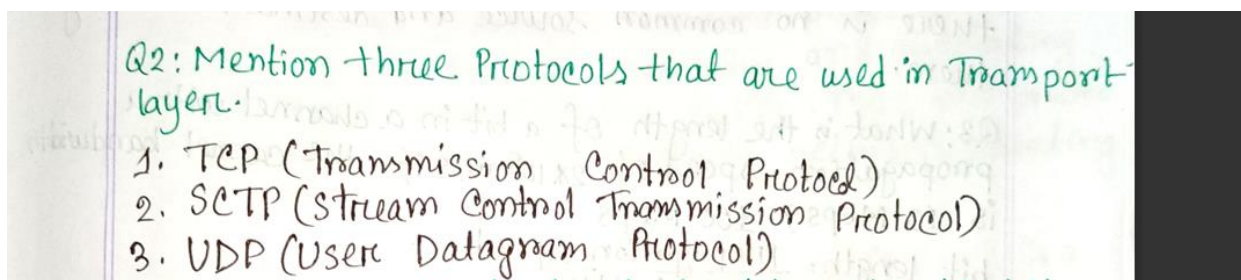 Q2: Mention three Protocols that are used in Transport
layer.
1. TCP (Transmission Control Protocol)
2. SCTP (Stream Control Transmission Protocol)
3. UDP (User Datagram Protocol)